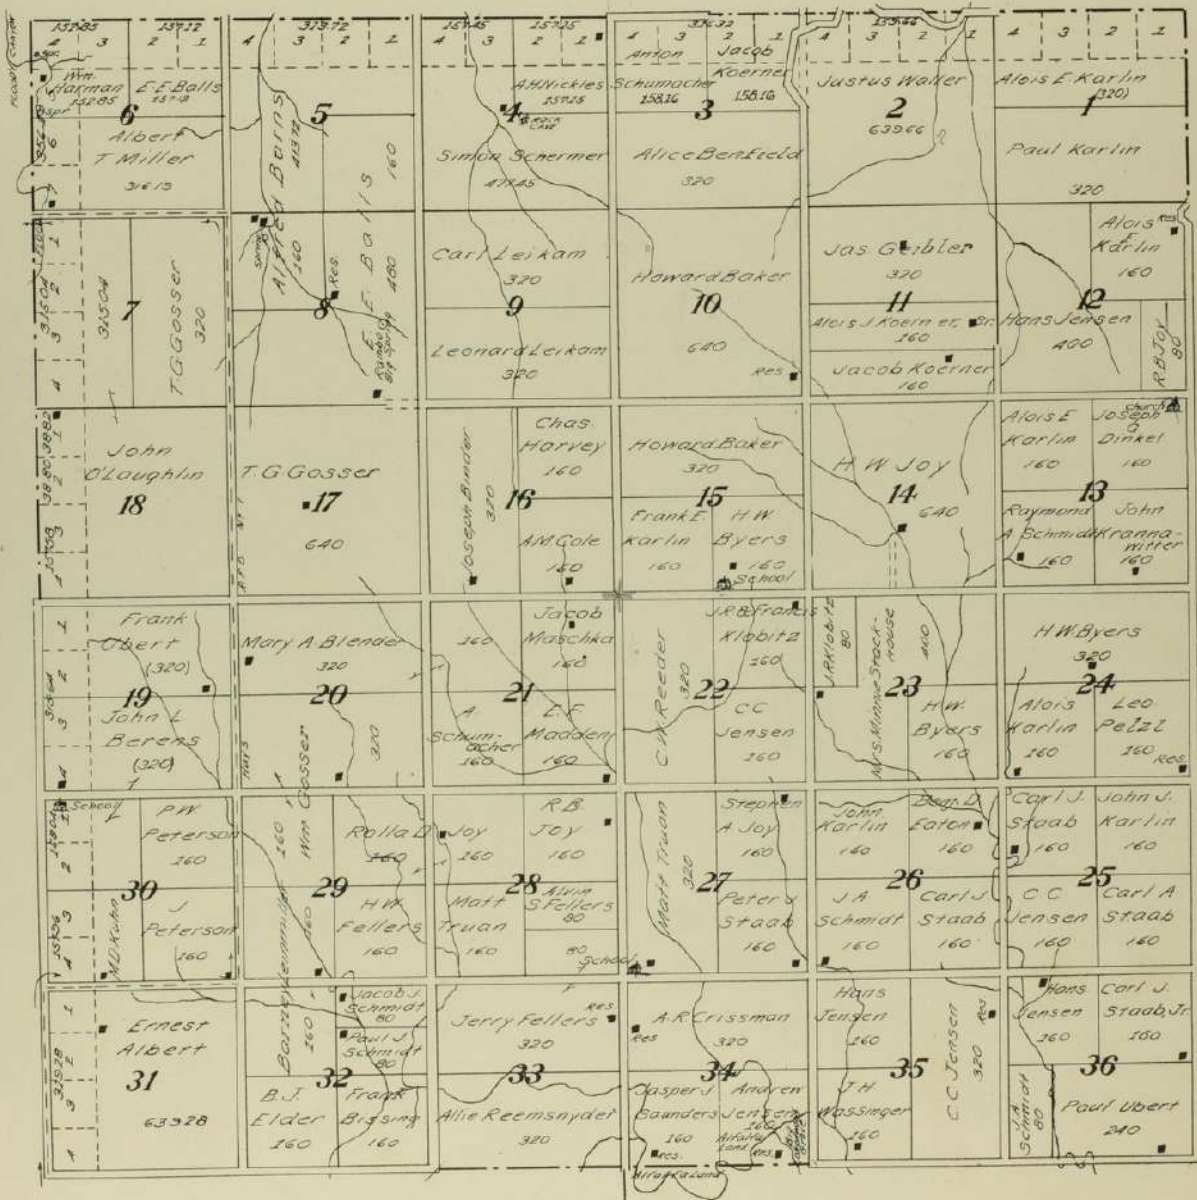 FLOODY CANYON
152.85 157.12
4 3 2 1
Spr.
Wm.
Harman
152.85
E.E. Balls
157.12
6
Albert
T Miller
316.13
313.72
4 3 2 1
5
Alfred Borns
413.72
160
E. E. Balls
160
480
157.45 157.15
4 3 2 1
A.H. Nickles
157.15
4
ROCK
CAVE
Simon Schermer
477.45
316.32
4 3 2 1
Anton
Schumacher
158.16
Jacob
Koerner
158.16
3
Alice Benfield
320
159.66
4 3 2 1
Justus Waller
2
639.66
4 3 2 1
Alois E. Karlin
(320)
1
Paul Karlin
320
315.04
1
2
3
4
315.04
7
T.G. Gosser
320
Spring
8
Res.
Rambo's
Big Spring
Carl Leikam
320
9
Leonard Leikam
320
Howard Baker
10
640
Res
Jas Geibler
320
11
Alois J. Koerner, Sr.
160
Jacob Koerner
160
Alois
E
Karlin
160
Res
12
Hans Jensen
400
R.B. Joy
80
38.82
1
38.80
2
3
4
John
O'Laughlin
18
T.G. Gosser
17
640
R.F.D. No 1
Joseph Binder
320
Chas.
Harvey
160
16
A.M. Cole
160
Howard Baker
320
15
Frank E.
Karlin
160
H.W.
Byers
160
School
H W Joy
14
640
Alois E
Karlin
160
Church
Joseph
G
Dinkel
160
13
Raymond
A Schmidt
160
John
Kranna-
witter
160
1
2
3
4
Frank
Obert
(320)
19
John L
Berens
(320)
Hays
Mary A. Blender
320
20
Wm Gosser
320
160
Jacob
Maschka
160
21
A
Schum-
acher
160
E.F.
Madden
160
C.W. Reeder
320
J.R. & Francis
Klobitz
160
22
C C
Jensen
160
J.R. Klobitz
80
Mrs Minnie Stack-
house
400
23
H.W.
Byers
160
H.W. Byers
320
24
Alois
Karlin
160
Leo
Pelzl
160
Res.
School
1
2
3
4
P.W.
Peterson
160
30
M.D. Kuhn
J
Peterson
160
160
160
29
Rolla D Joy
160 160
H.W.
Fellers
160
R.B.
Joy
160
28
Matt
Truan
160
Alvin
S Fellers
80
80
School
Matt Truan
320
Stephen
A Joy
160
27
Peter J
Staab
160
John
Karlin
160
Benj. D.
Eaton
160
26
J A
Schmidt
160
Carl J
Staab
160
Carl J.
Staab
160
John J.
Karlin
160
25
C C
Jensen
160
Carl A
Staab
160
319.28
1
2
3
4
Ernest
Albert
31
639.28
160
Jacob J.
Schmidt
80
Paul J.
Schmidt
80
32
B.J.
Elder
160
Frank
Bissing
160
Jerry Fellers
320
Res.
33
Allie Reemsnyder
320
A.R. Crissman
320
Res
34
Jasper J
Saunders
160
Res.
Andrew
Jensen
160
Alfalfa
Land
Res.
Alfalfa Land
Hans
Jensen
160
35
J H
Wassinger
160
C C Jensen
320
Res
Hans
Jensen
160
Carl J.
Staab, Jr.
160
36
J.A.
Schmidt
80
Paul Ubert
240